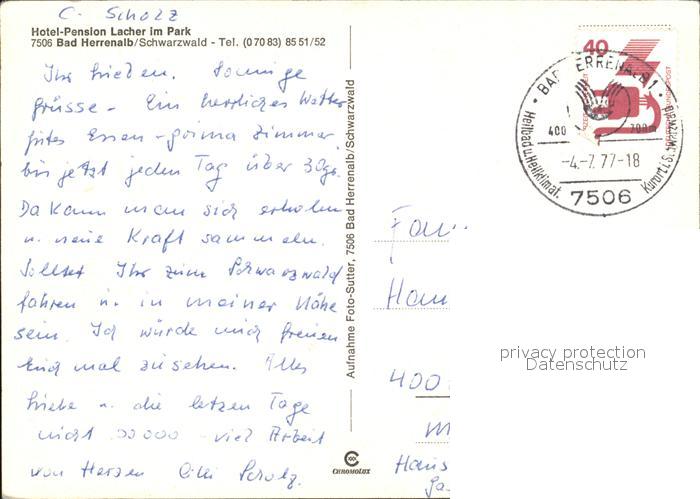 C. Scholz
Hotel-Pension Lacher im Park
7506 Bad Herrenalb/Schwarzwald - Tel. (0 70 83) 85 51/52
Ihr Lieben. Sonnige
Grüsse - Ein herrliches Wetter
gutes Essen - prima Zimmer.
bis jetzt jeden Tag über 30gr.
Da kann man sich erholen
u. neue Kraft sammeln.
Solltet Ihr zum Schwarzwald
fahren u. in meiner Nähe
sein. Ich würde mich freuen
Euch mal zu sehen. Alles
Liebe u. die letzen Tage
nicht soooo viel Arbeit
von Herzen Cilli Scholz.
Aufnahme Foto-Sutter, 7506 Bad Herrenalb/Schwarzwald
CHROMOLUX
40
DEUTSCHE BUNDESPOST
BAD HERRENALB 1
400 700m
-4.-7.77-18
Heilbad u. Heilklimat. Kurort i. S. Schwarzwald
7506
Fam.
Ham
400
Haus
privacy protection
Datenschutz